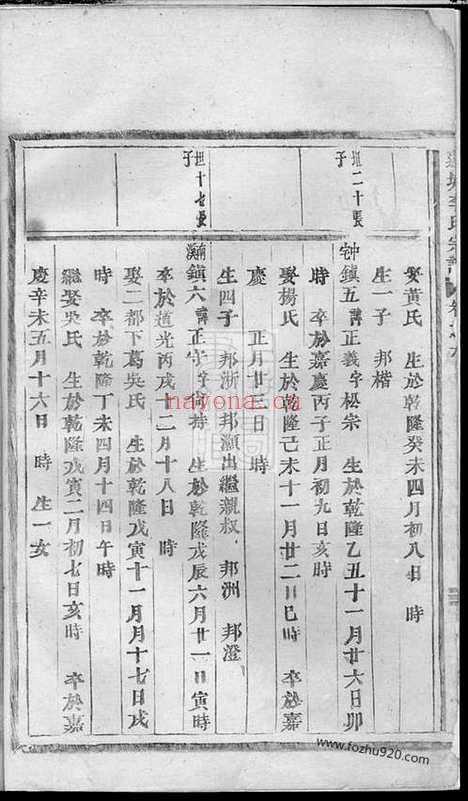 娶黃氏　生於乾隆癸未四月初八日　時
生一子　邦楷
坦二十張子
鎮五諱正義字松宗　生於乾隆乙丑十一月廿六日卯
時　卒於嘉慶丙子正月初九日亥時
娶楊氏　生於乾隆己未十一月廿二日巳時　卒於嘉
慶　正月廿三日　時
生四子　邦浙　邦灝出繼親叔　邦洲　邦澄
坦十七張子
鎮六諱正守字尚持　生於乾隆戊辰六月廿一日寅時
卒於道光丙戌十二月十八日　時
娶二都下葛吳氏　生於乾隆戊寅十一月十七日戌
時　卒於乾隆丁未四月十四日午時
繼娶吳氏　生於乾隆戊寅二月初七日亥時　卒於嘉
慶辛未五月十六日　時　生一女
nayona.cn
www.fozhu920.com